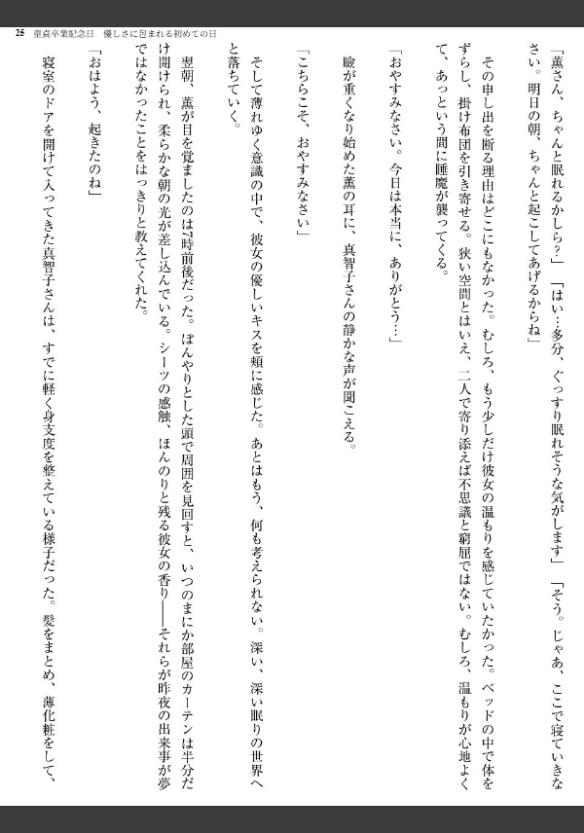 25 童貞卒業記念日 優しさに包まれる初めての日
「薫さん、ちゃんと眠れるかしら?」「はい…多分、ぐっすり眠れそうな気がします」「そう。じゃあ、ここで寝ていきな
さい。明日の朝、ちゃんと起こしてあげるからね」
その申し出を断る理由はどこにもなかった。むしろ、もう少しだけ彼女の温もりを感じていたかった。ベッドの中で体を
ずらし、掛け布団を引き寄せる。狭い空間とはいえ、二人で寄り添えば不思議と窮屈ではない。むしろ、温もりが心地よく
て、あっという間に睡魔が襲ってくる。
「おやすみなさい。今日は本当に、ありがとう…」
瞼が重くなり始めた薫の耳に、真智子さんの静かな声が聞こえる。
「こちらこそ、おやすみなさい」
そして薄れゆく意識の中で、彼女の優しいキスを頬に感じた。あとはもう、何も考えられない。深い、深い眠りの世界へ
と落ちていく。
翌朝、薫が目を覚ましたのは7時前後だった。ぼんやりとした頭で周囲を見回すと、いつのまにか部屋のカーテンは半分だ
け開けられ、柔らかな朝の光が差し込んでいる。シーツの感触、ほんのりと残る彼女の香り――それらが昨夜の出来事が夢
ではなかったことをはっきりと教えてくれた。
「おはよう、起きたのね」
寝室のドアを開けて入ってきた真智子さんは、すでに軽く身支度を整えている様子だった。髪をまとめ、薄化粧をして、